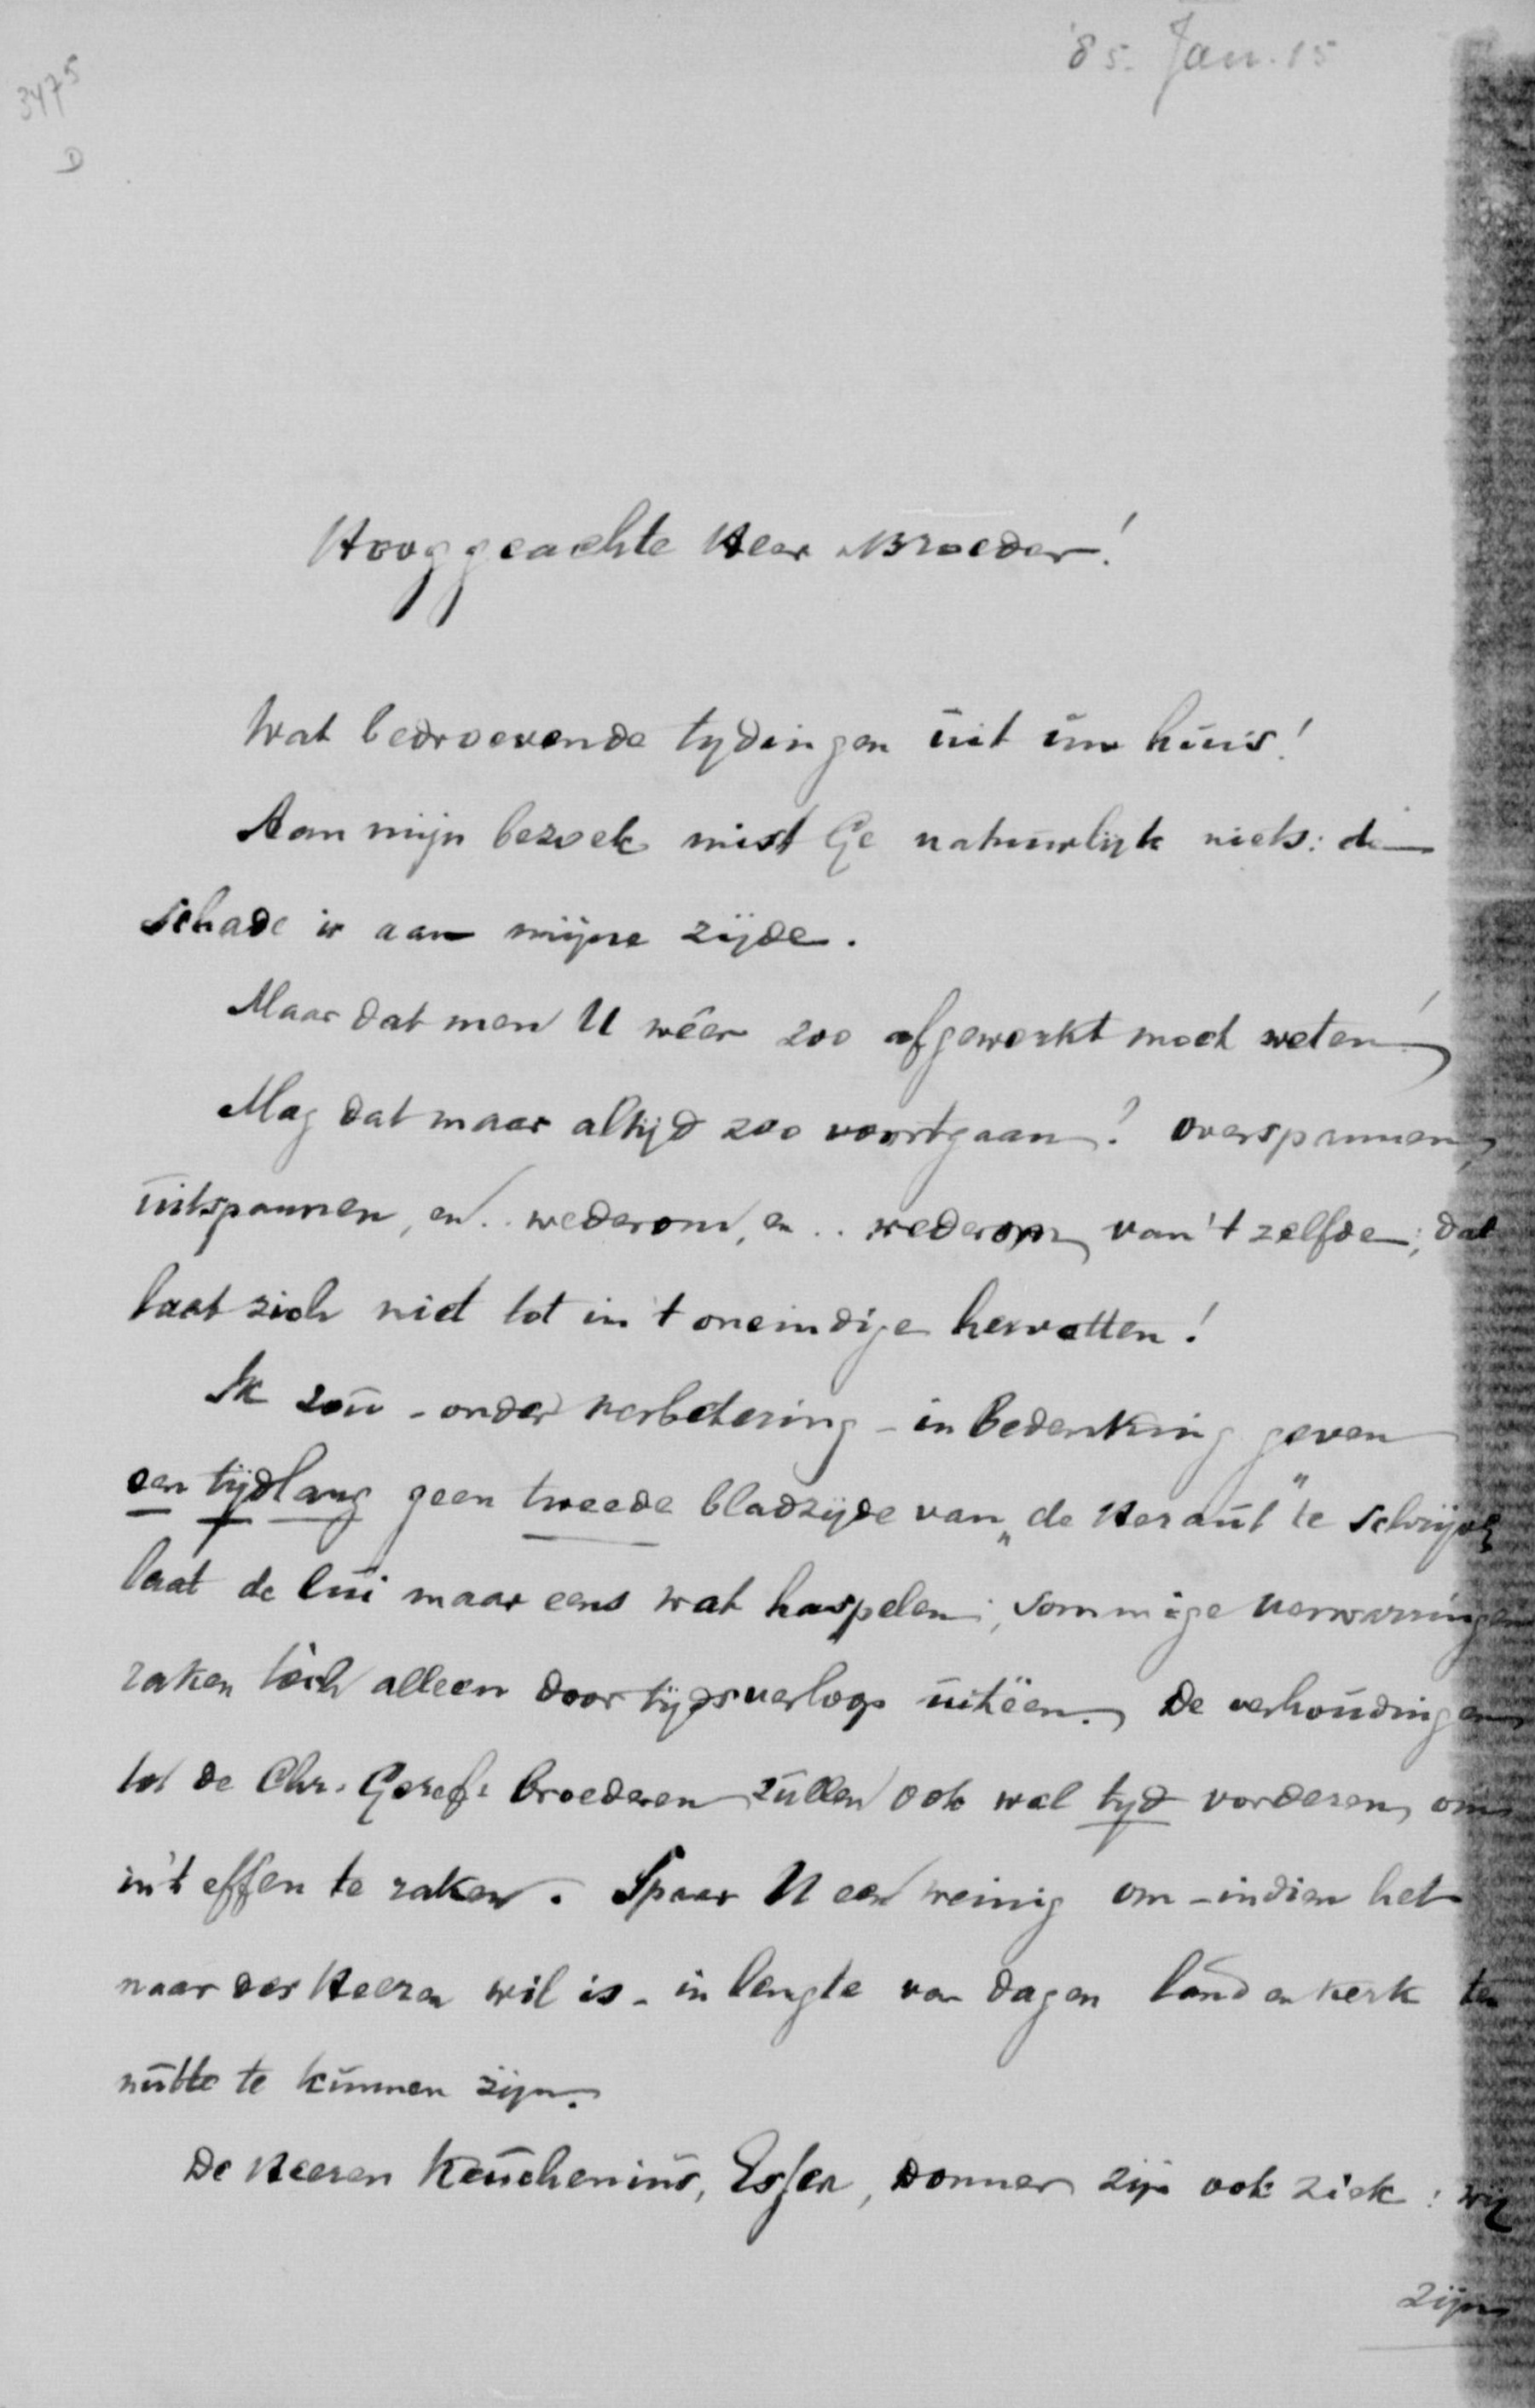 '85. Jan. 15
3475
D
Hooggeachte Heer & Broeder!
Wat bedroevende tydingen uit uw huis!
Aan mijn bezoek mist Ge natuurlijk niets: de
schade is aan mijne zijde.
Maar dat men U wéér zoo afgewerkt moet weten!
Mag dat maar altijd zoo voortgaan? overspannen,
uitspannen, en.. wederom, en .. wederom van 't zelfde; dat
laat zich niet tot in 't oneindige hervatten!
Ik zou - onder verbetering - in bedenking geven
een tijdlang geen tweede bladzijde van „de Heraut" te schrijven
laat de lui maar eens wat haspelen; sommige verwarringen
raken tòch alleen door tijdsverloop uitéen. De verhoudingen
tot de Chr. Geref. broederen zullen ook wel tyd vorderen, om
in't effen te raken. Spaar U een weinig om - indien het
naar des Heeren wil is - in lengte van dagen land en kerk ten
nutte te kunnen zijn.
De Heeren Keuchenius, Esser, Donner zijn ook ziek: wij
zijn